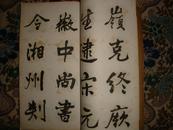 嶺克終厥
生逮宋元
徽中尚書
令湘州刺